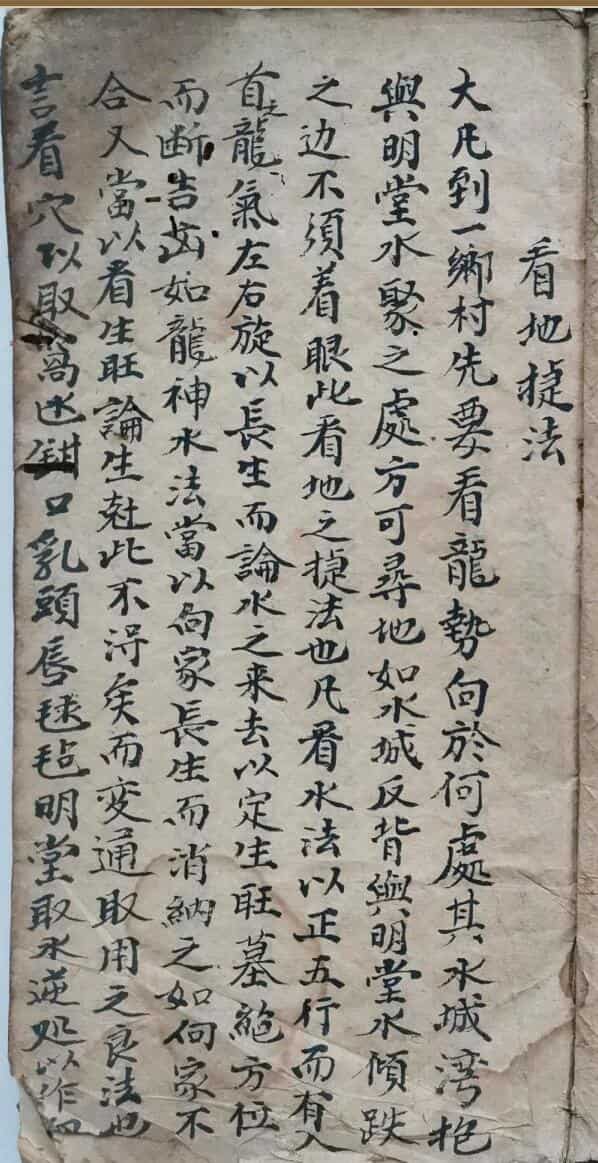 看地捷法
大凡到一鄉村先要看龍勢向於何處其水城湾抱
與明堂水聚之處方可尋地如水城反背與明堂水傾跌
之边不須着眼此看地之捷法也凡看水法以正五行而有入
首之龍氣左右旋以長生而論水之来去以定生旺墓絶方位
而断吉凶如龍神水法當以向家長生而消納之如向家不
合又當以看生旺論生尅此不得矣而变通取用之良法也
言看穴以取窩迯鉗口乳頭唇毬毡明堂取水逆处以作